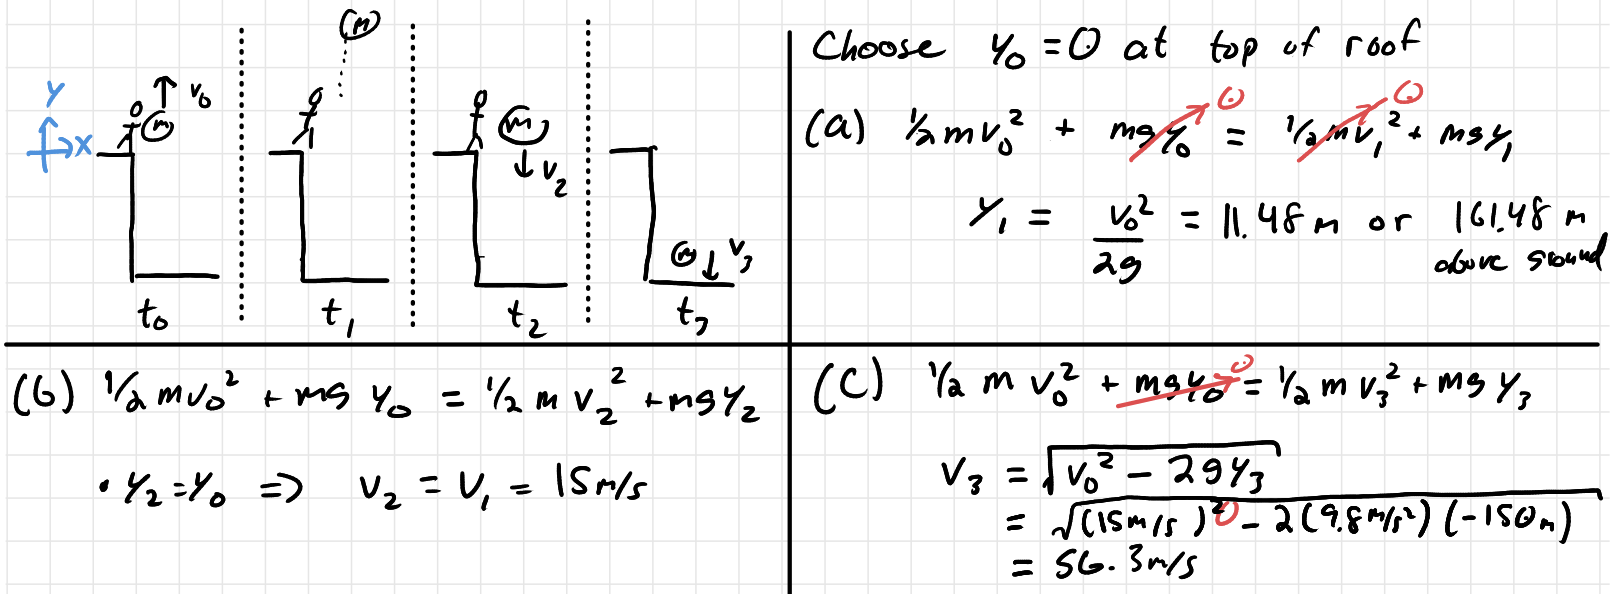 m
Y
X
v₀
m
t₀
t₁
m
v₂
t₂
m
v₃
t₃
Choose y₀ = 0 at top of roof
(a) 1/2 m v₀² + mg y₀ 0 = 1/2 m v₁² 0 + mg y₁
y₁ = v₀²/2g = 11.48 m or 161.48 m
above ground
(b) 1/2 m v₀² + mg y₀ = 1/2 m v₂² + mg y₂
• y₂ = y₀ ⇒ v₂ = v₁ = 15 m/s
(C) 1/2 m v₀² + mg y₀ 0 = 1/2 m v₃² + mg y₃
v₃ = √(v₀² - 2g y₃)
= √((15 m/s)² 0 - 2(9.8 m/s²)(-150 m))
= 56.3 m/s